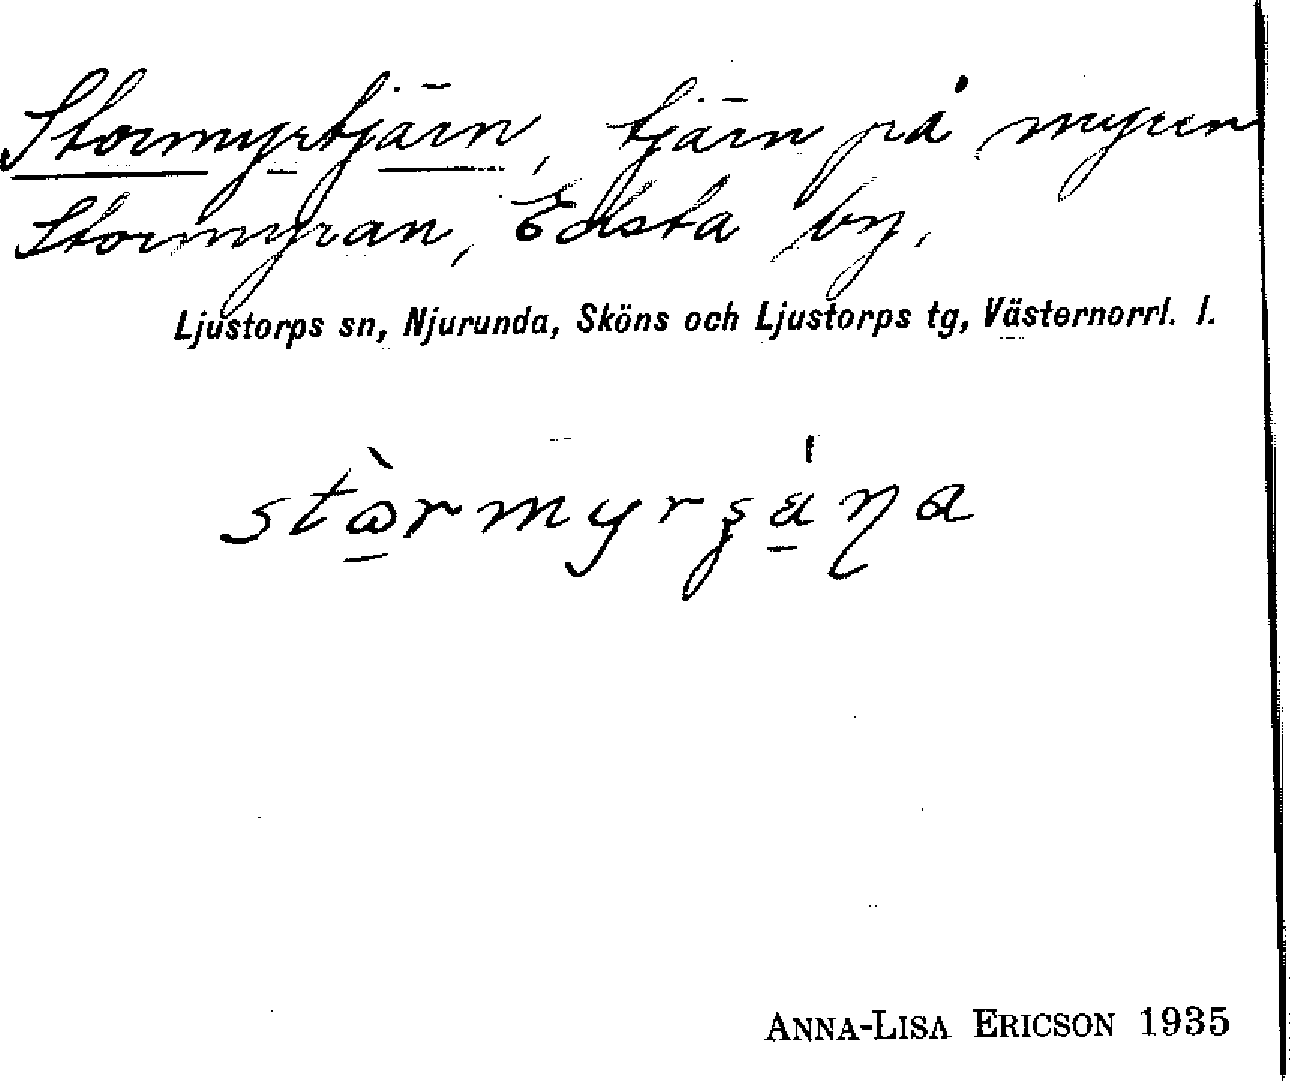 Stormyrtjärn, tjärn på myren
Stormyran, Edsta by.
Ljustorps sn, Njurunda, Sköns och Ljustorps tg, Västernorrl. l.
ANNA-LISA ERICSON 1935